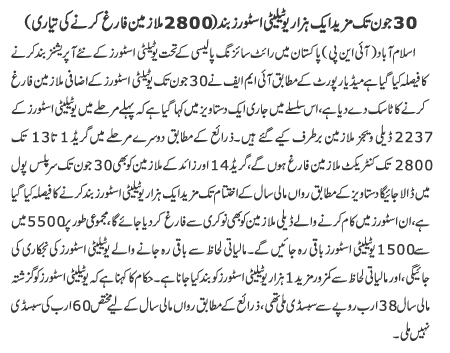 30 جون تک مزید ایک ہزار یوٹیلیٹی اسٹورز بند (2800 ملازمین فارغ کرنے کی تیاری)
اسلام آباد (آئی این پی) پاکستان میں رائٹ سائزنگ پالیسی کے تحت یوٹیلیٹی اسٹورز کے نئے آپریشنز بند کرنے
کا فیصلہ کیا گیا ہے میڈیا رپورٹ کے مطابق آئی ایم ایف نے 30 جون تک یوٹیلیٹی اسٹورز کے اضافی ملازمین فارغ
کرنے کا ٹاسک دے دیا ہے، اس سلسلے میں جاری ایک دستاویز میں کہا گیا ہے کہ پہلے مرحلے میں یوٹیلیٹی اسٹورز کے
2237 ڈیلی ویجز ملازمین برطرف کیے گئے ہیں۔ ذرائع کے مطابق دوسرے مرحلے میں گریڈ 1 تا 13 تک
2800 تک کنٹریکٹ ملازمین فارغ ہوں گے، گریڈ 14 اور زائد کے ملازمین کو بھی 30 جون تک سرپلس پول
میں ڈالا جائیگا دستاویز کے مطابق رواں مالی سال کے اختتام تک مزید ایک ہزار یوٹیلیٹی اسٹورز بند کرنے کا فیصلہ کیا گیا
ہے، ان اسٹورز میں کام کرنے والے ڈیلی ملازمین کو بھی نوکری سے فارغ کر دیا جائے گا، مجموعی طور پر 5500 میں
سے 1500 یوٹیلیٹی اسٹورز باقی رہ جائیں گے۔ مالیاتی لحاظ سے باقی رہ جانے والے یوٹیلیٹی اسٹورز کی نجکاری کی
جائیگی، اور مالیاتی لحاظ سے کمزور مزید 1 ہزار یوٹیلیٹی اسٹورز کو بند کیا جانا ہے۔ حکام کا کہنا ہے کہ یوٹیلیٹی اسٹورز کو گزشتہ
مالی سال 38 ارب روپے سے سبسڈی ملی تھی، ذرائع کے مطابق رواں مالی سال کے لیے مختص 60 ارب کی سبسڈی
نہیں ملی۔